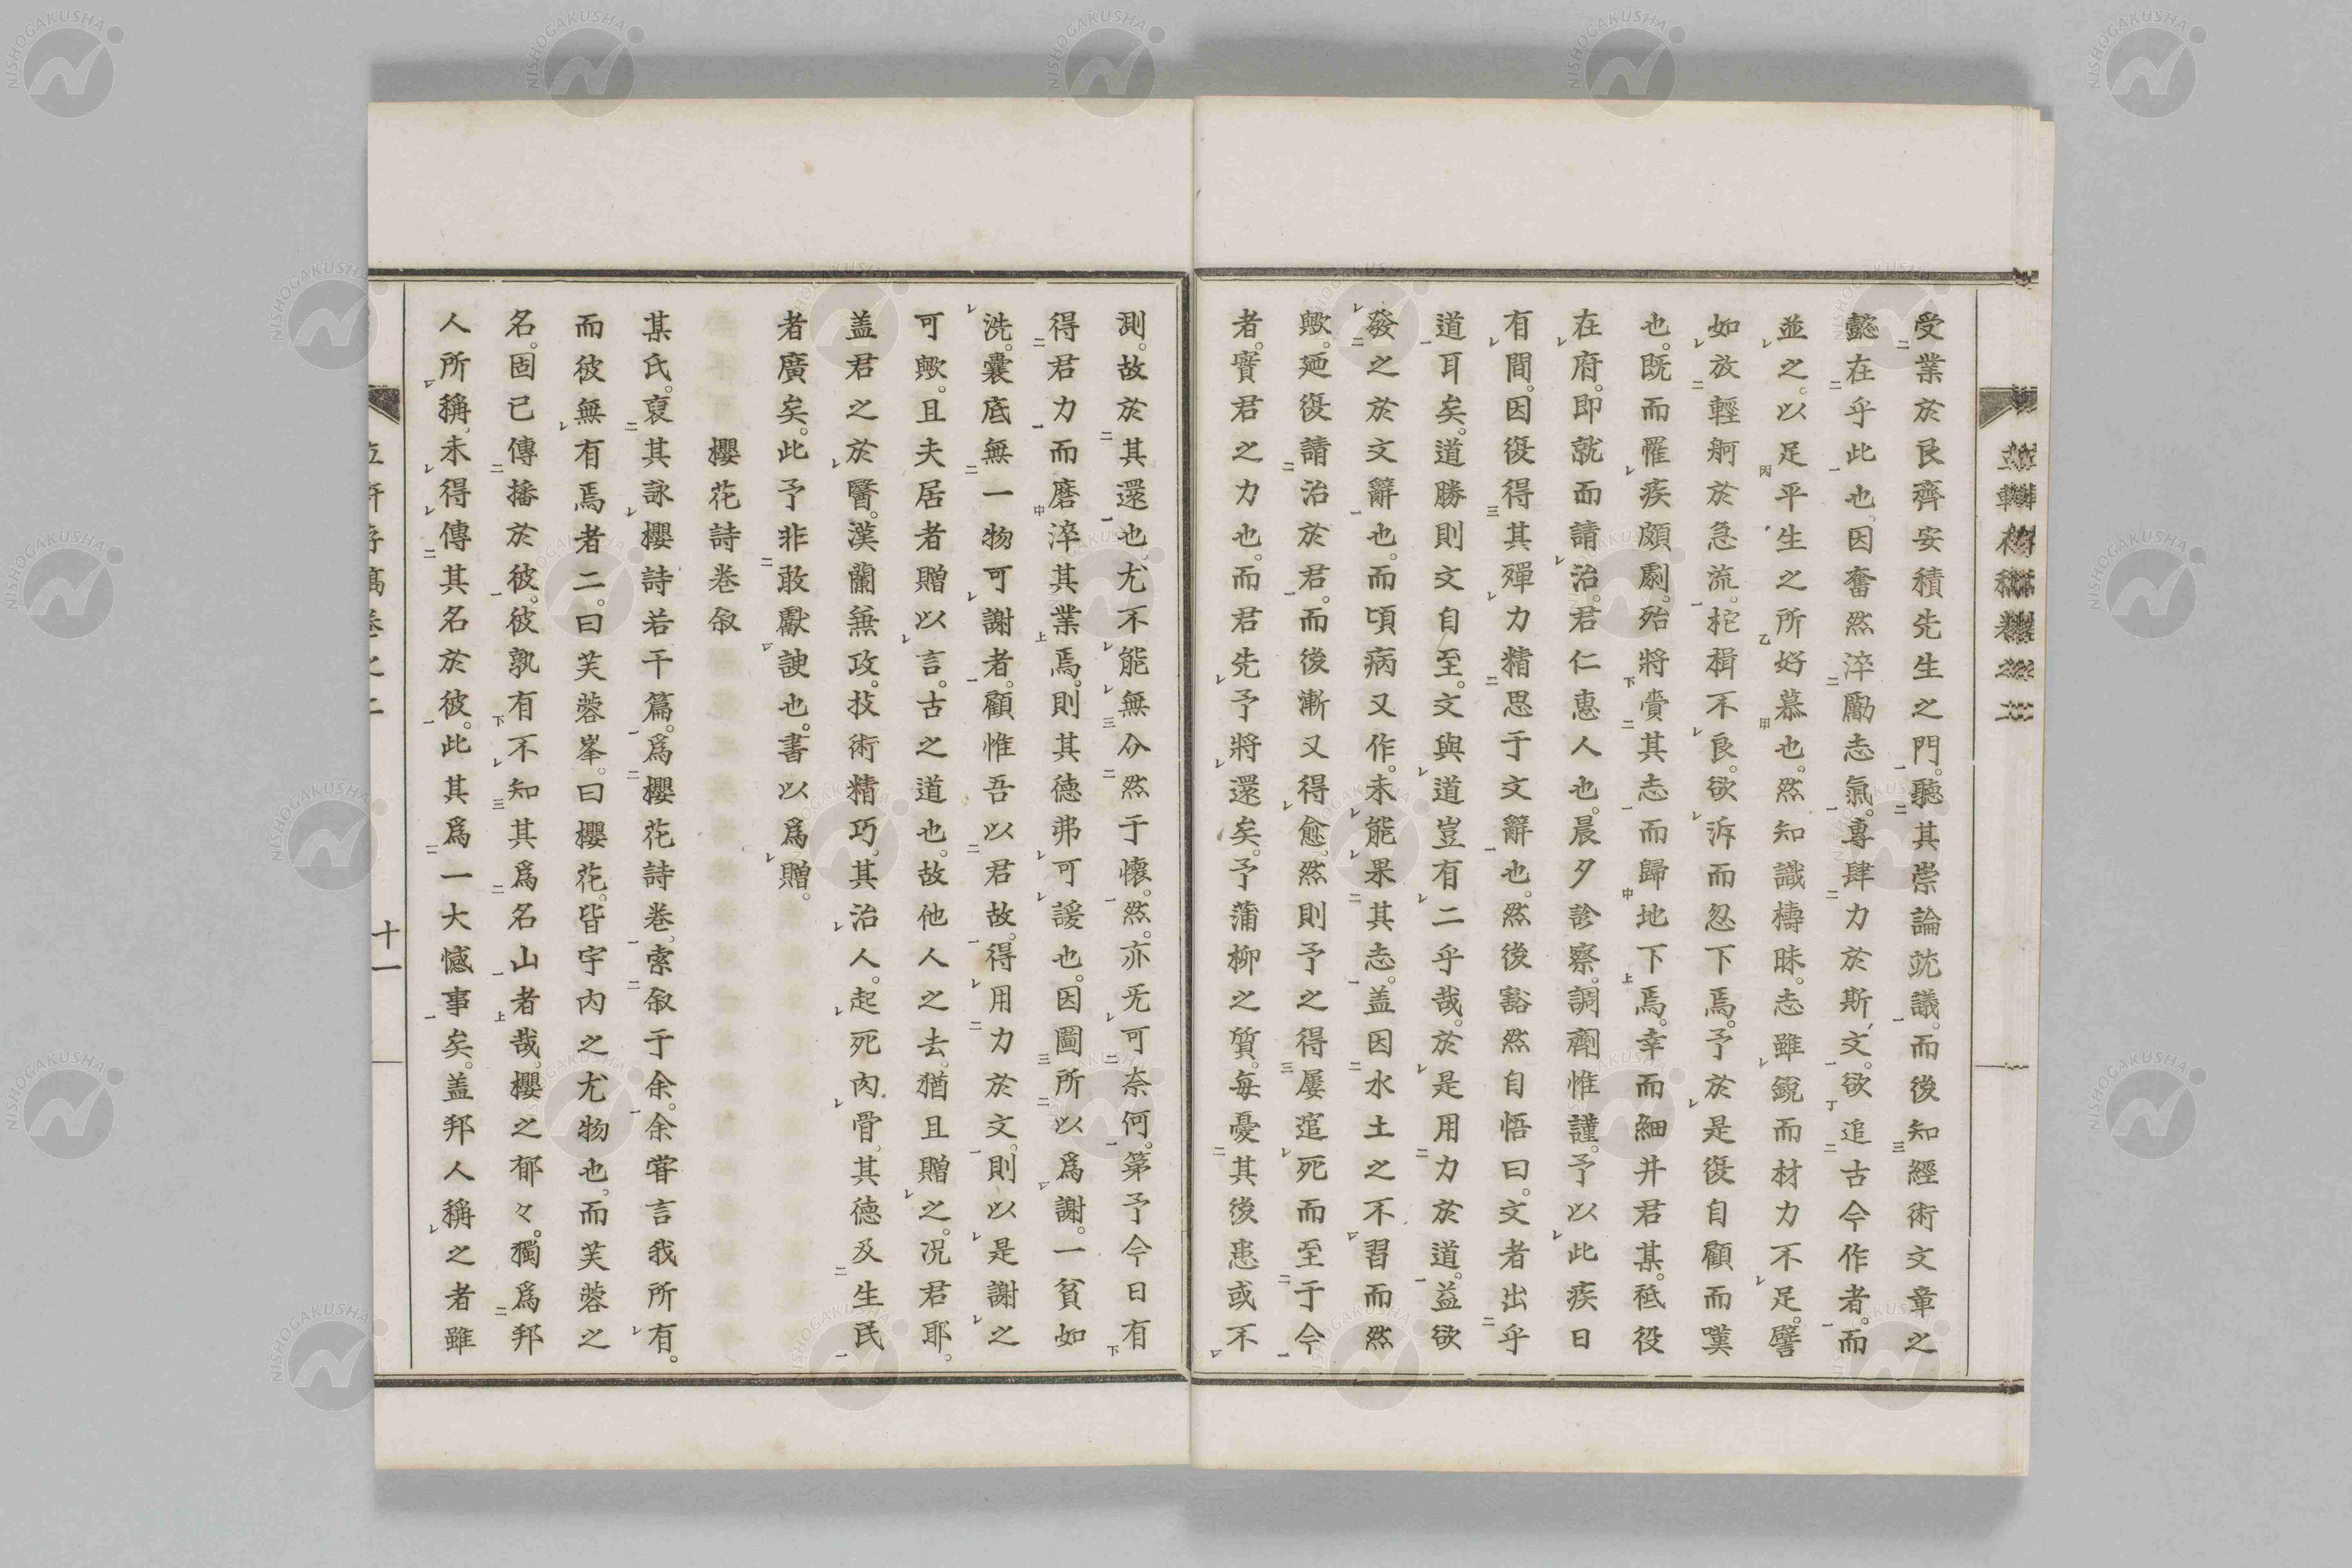 受業於艮齊安積先生之門。聽其崇論竑議。而後知經術文章之
懿在乎此也。因奮然淬勵志氣。專肆力於斯文。欲追古今作者。而
並之。以足平生之所好慕也。然知識檮昧。志雖銳而材力不足。譬
如放輕舸於急流。柁楫不良。欲泝而忽下焉。予於是復自顧而嘆
也。既而罹疾頗劇。殆將賫其志而歸地下焉。幸而細井君某。祗役
在府。即就而請治。君仁惠人也。晨夕診察。調劑惟謹。予以此疾日
有間。因復得其殫力精思于文辭也。然後豁然自悟曰。文者出乎
道耳矣。道勝則文自至。文與道豈有二乎哉。於是用力於道。益欲
發之於文辭也。而頃病又作。未能果其志。盖因水土之不習而然
歟。廼復請治於君。而後漸又得愈。然則予之得屢遯死而至于今
者。實君之力也。而君先予將還矣。予蒲柳之質。每憂其後患或不
測。故於其還也。尤不能無介然于懷。然。亦无可奈何。第予今日有
得君力而磨淬其業焉。則其德弗可諼也。因圖所以爲謝。一貧如
洗。囊底無一物可謝者。顧惟吾以君故。得用力於文。則以是謝之
可歟。且夫居者贈以言。古之道也。故他人之去。猶且贈之。況君耶。
盖君之於醫。漢蘭兼攻。技術精巧。其治人。起死肉骨。其德及生民
者廣矣。此予非敢獻諛也。書以爲贈。
櫻花詩卷叙
某氏。裒其詠櫻詩若干篇。爲櫻花詩卷。索叙于余。余嘗言我所有。
而彼無有焉者二。曰芙蓉峯。曰櫻花。皆宇内之尤物也。而芙蓉之
名。固已傳播於彼。彼孰有不知其爲名山者哉。櫻之郁々。獨爲邦
人所稱。未得傳其名於彼。此其爲一大憾事矣。盖邦人稱之者雖
十一